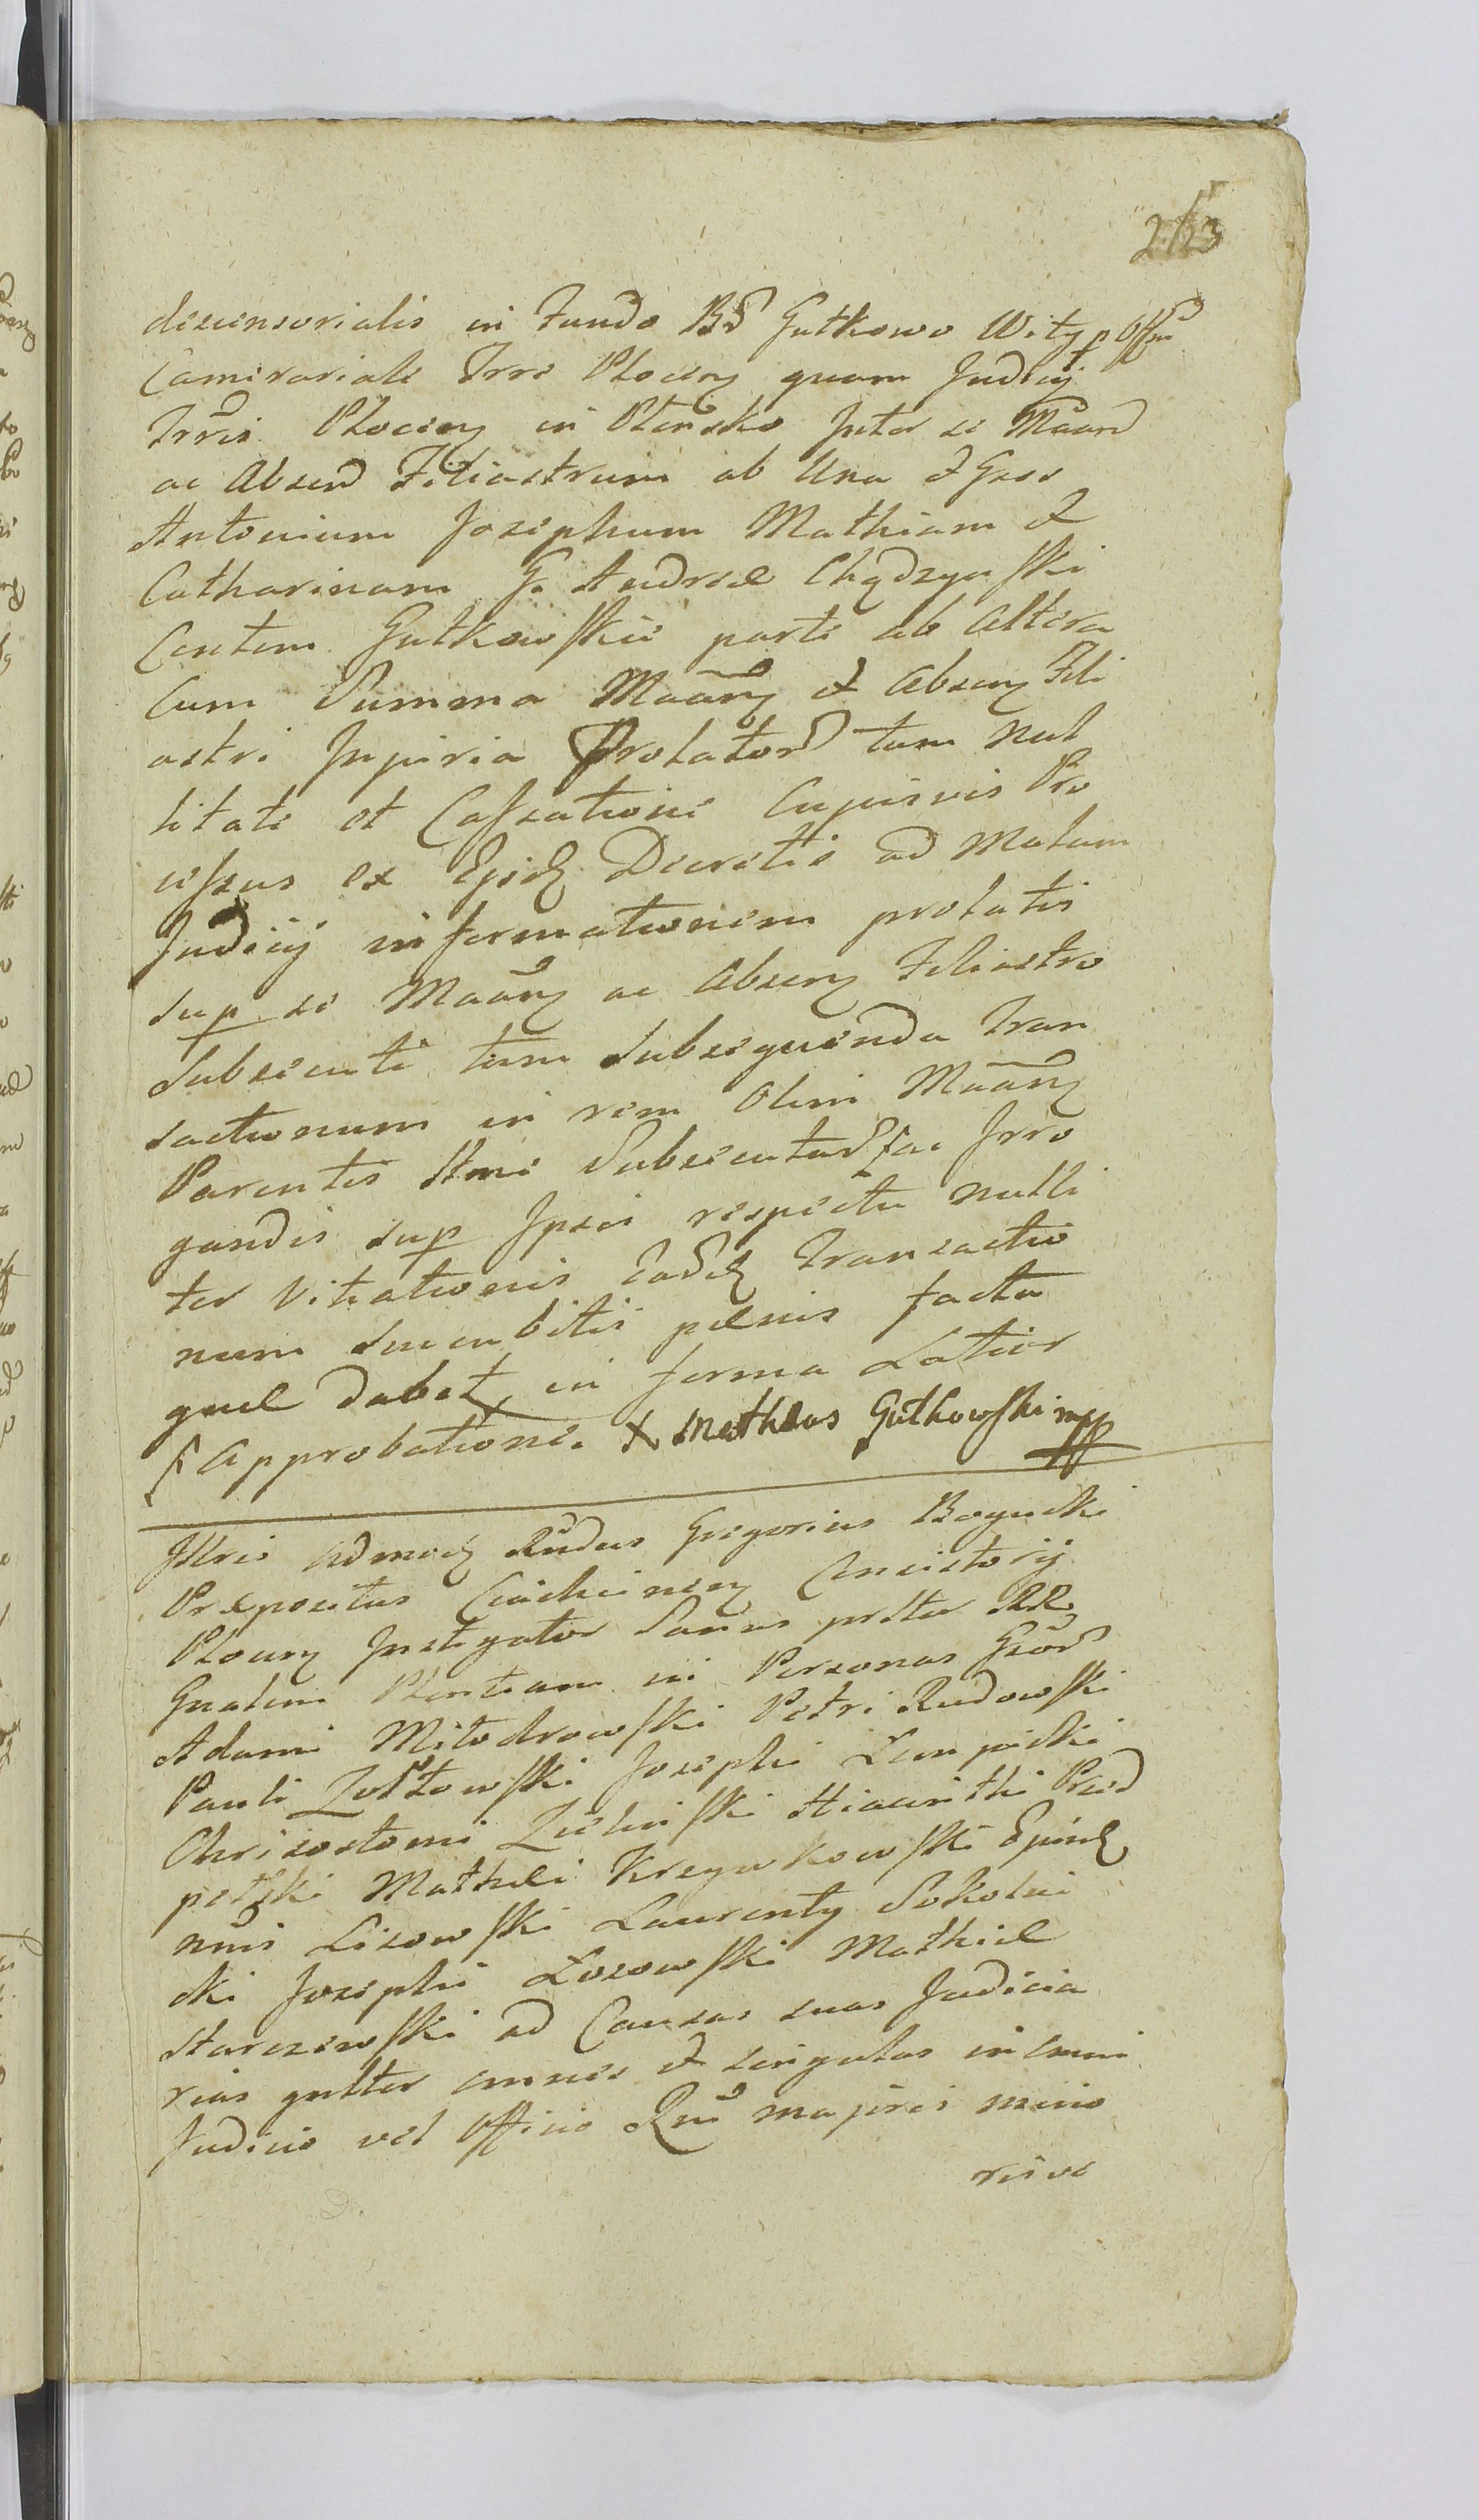 253
descensorialis in Fundo Bd Gutkowo Wity p Offm
Camerariale Trre Plocen quam Judicij
Trris Plocen in Plonsko Inter se Maand
ac Absend Filiastrum ab Una et Gsos
Antonium Josephum Mathiam et
Catharinam G. Andreæ Chądzyński
Contem Gutkowskie parte ab Altera
Cum Summa Maanę et Absenę Fili
astri Injuria Prolator tum Nul
litate et Cassatione Cujusvis Pro
cessus ex Ejsdę Decretis ad Malam
Judicij informationem prolatis
Sup se Maanę ac Absenę Filiastro
Subsecuti tum Subsequenda Tran
sactionum in rem Olim Maanę
Parentis Sui Subsecutar ac Irro
gandis sup Ipsos respectu nulli
ter Vitiationis Eadę Transactio
num Succubitis pænis facta
quæ dabit in forma Latior
Approbatione. X Matheus Gutkowski mpp
Illris Admodę Rndus Gregorius Bogucki
Præpositus Ciachcinen Consistorij
Plocen Instigator Sanus prstur RR
Gnalem Plentiam in Personas Gsor
Adami Mitodrowski Petri Rudowski
Pauli Zołtowski Josephi Lempicki
Chrisostomi Zieliński Hiacinthi Przed
petski Mathæi Krzywkowski
Lisowski Laurenty Sokolni
cki Josephi Losowski Mathiæ
Starczewski ad Causas suas Judicia
rias gnltter omnes et singulas in omni
Judicio vel Officio Rni majoris mino
risve